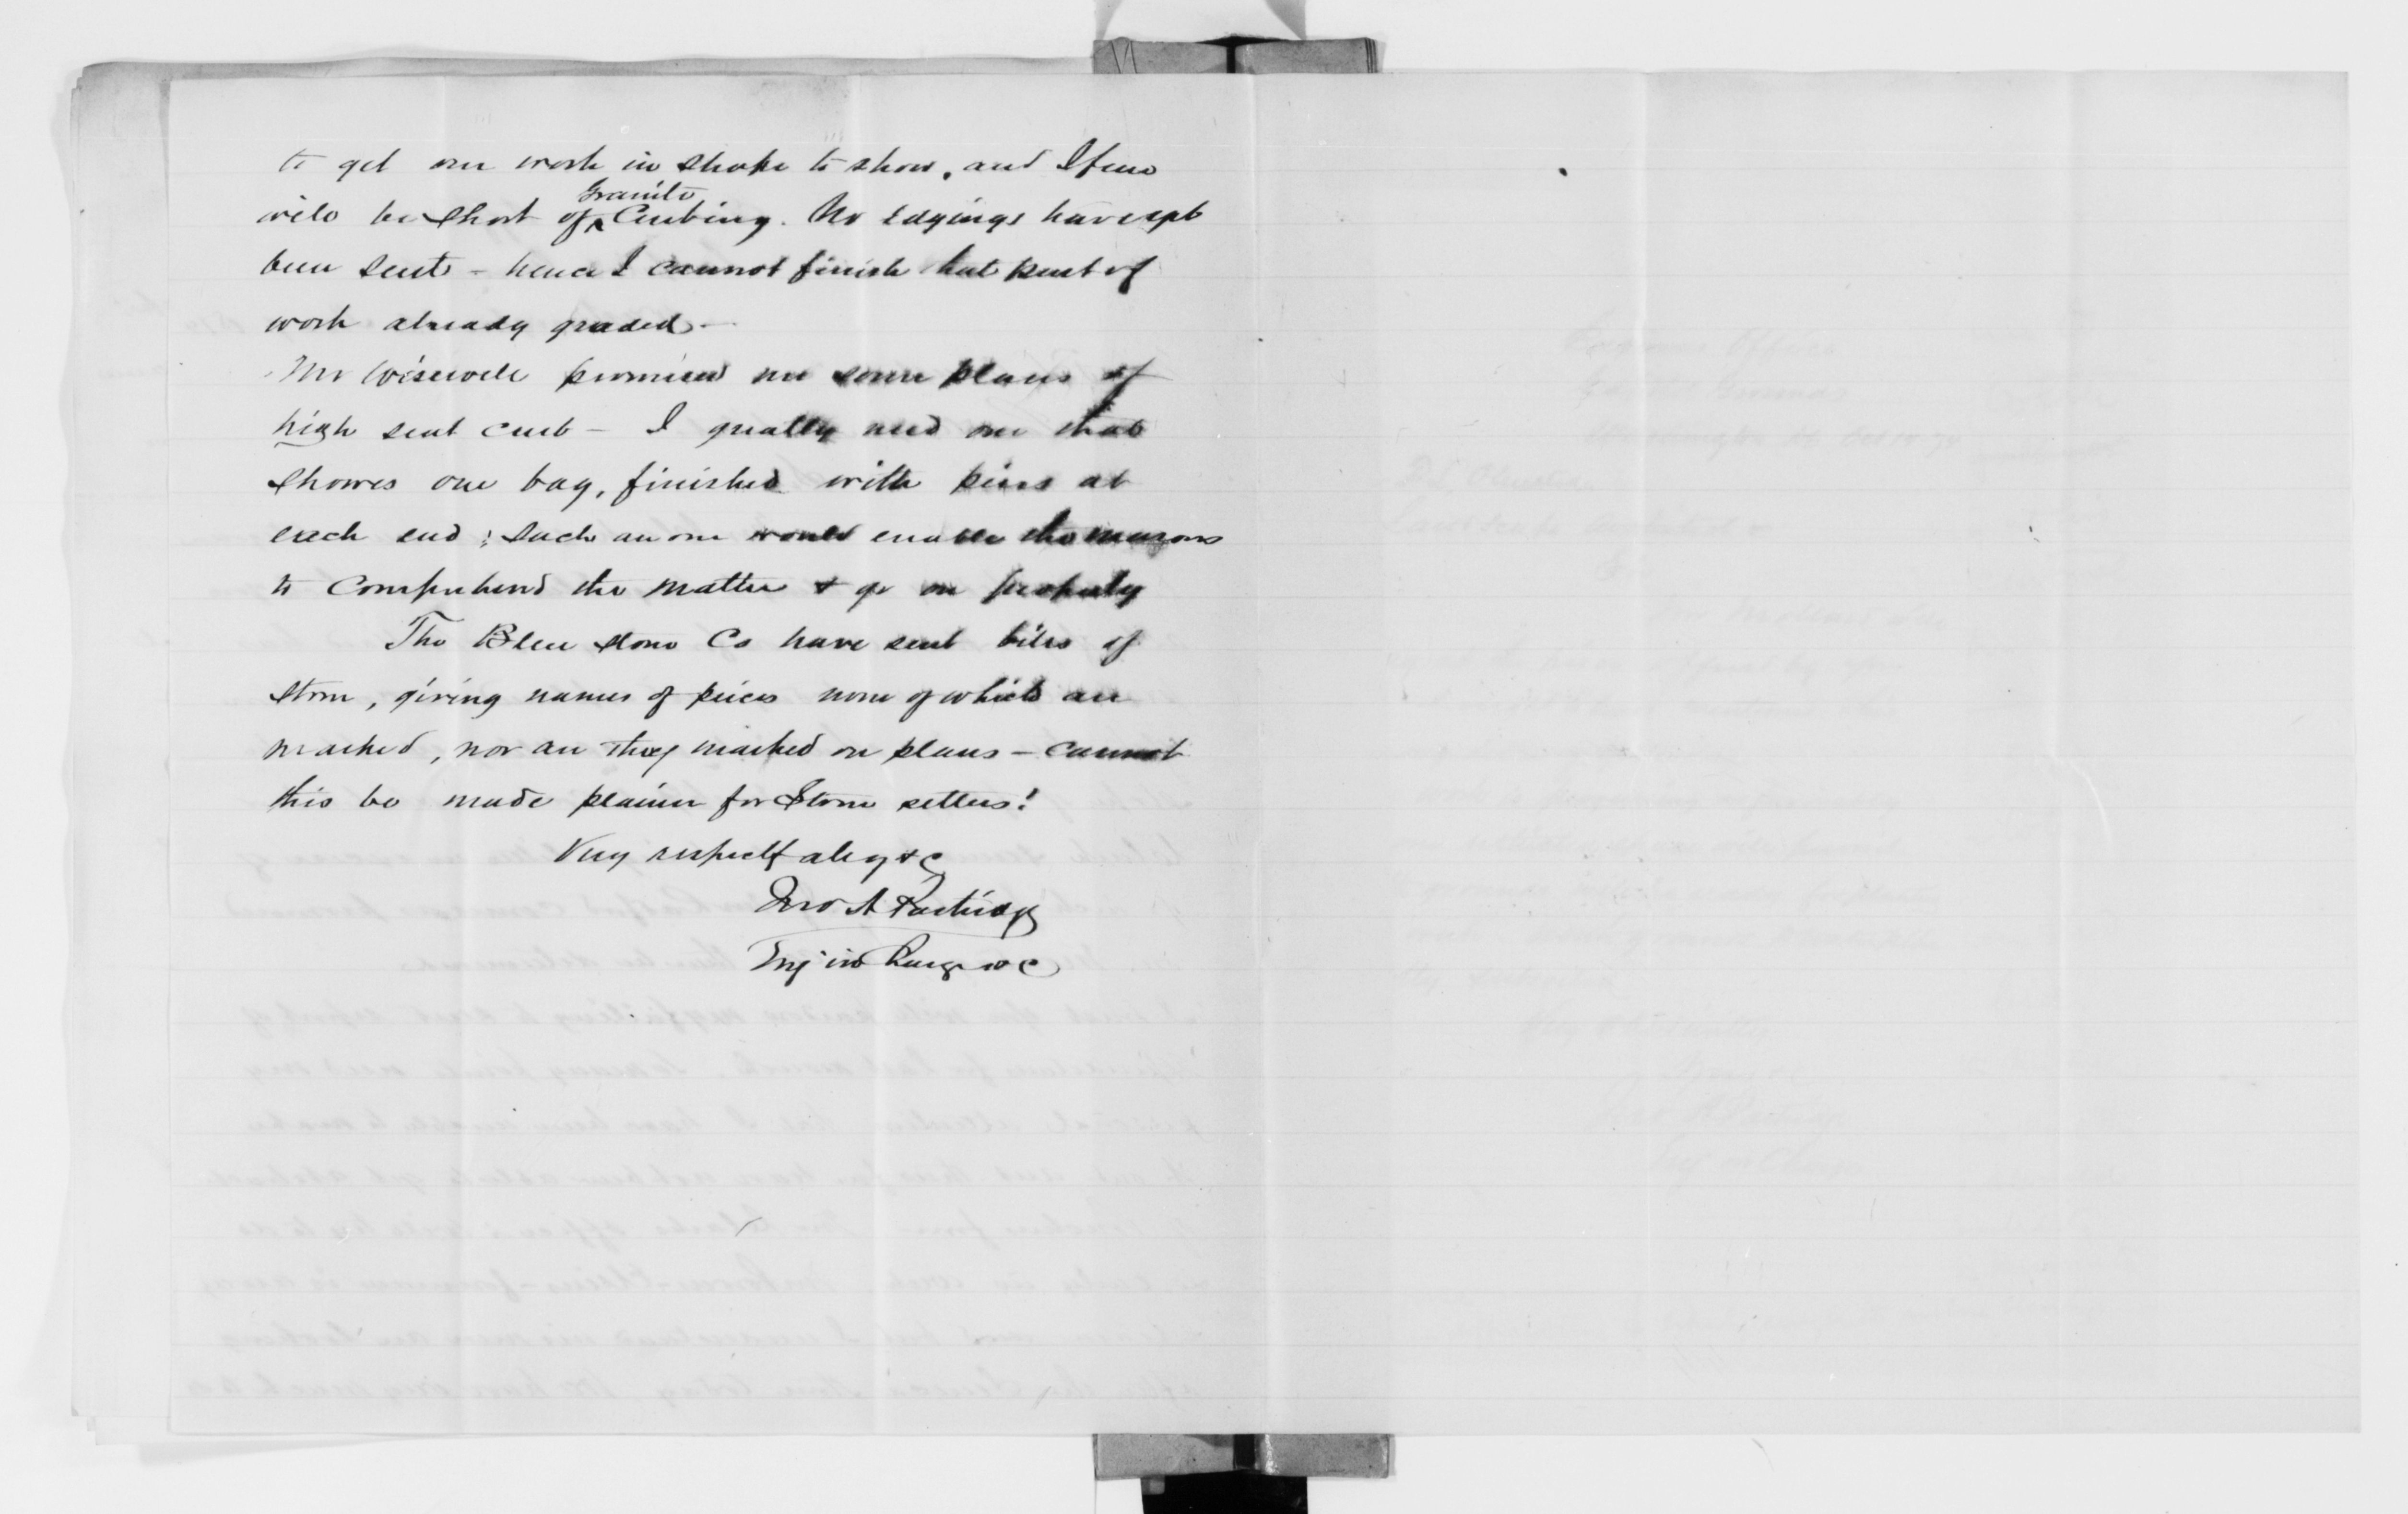 to get our work in shape to show. and I fear
will be short of Granite Curbing. No Edgings have yet
been sent - hence I cannot finish that part of
work already graded -
Mr Wisewell promised me some plans of
high seat curb - I greatly need one that
showes one bay, finished with piers at
each end; such an one would enable the masons
to comprehend the matter & go on properly
The Blue Stone Co have sent bills of
stone, giving names of pieces none of which are
marked, nor are they marked on plans - cannot
this be made plainer for Stone setters!
Very respectfully &c
Jno A Partridge
Eng in Charge &c